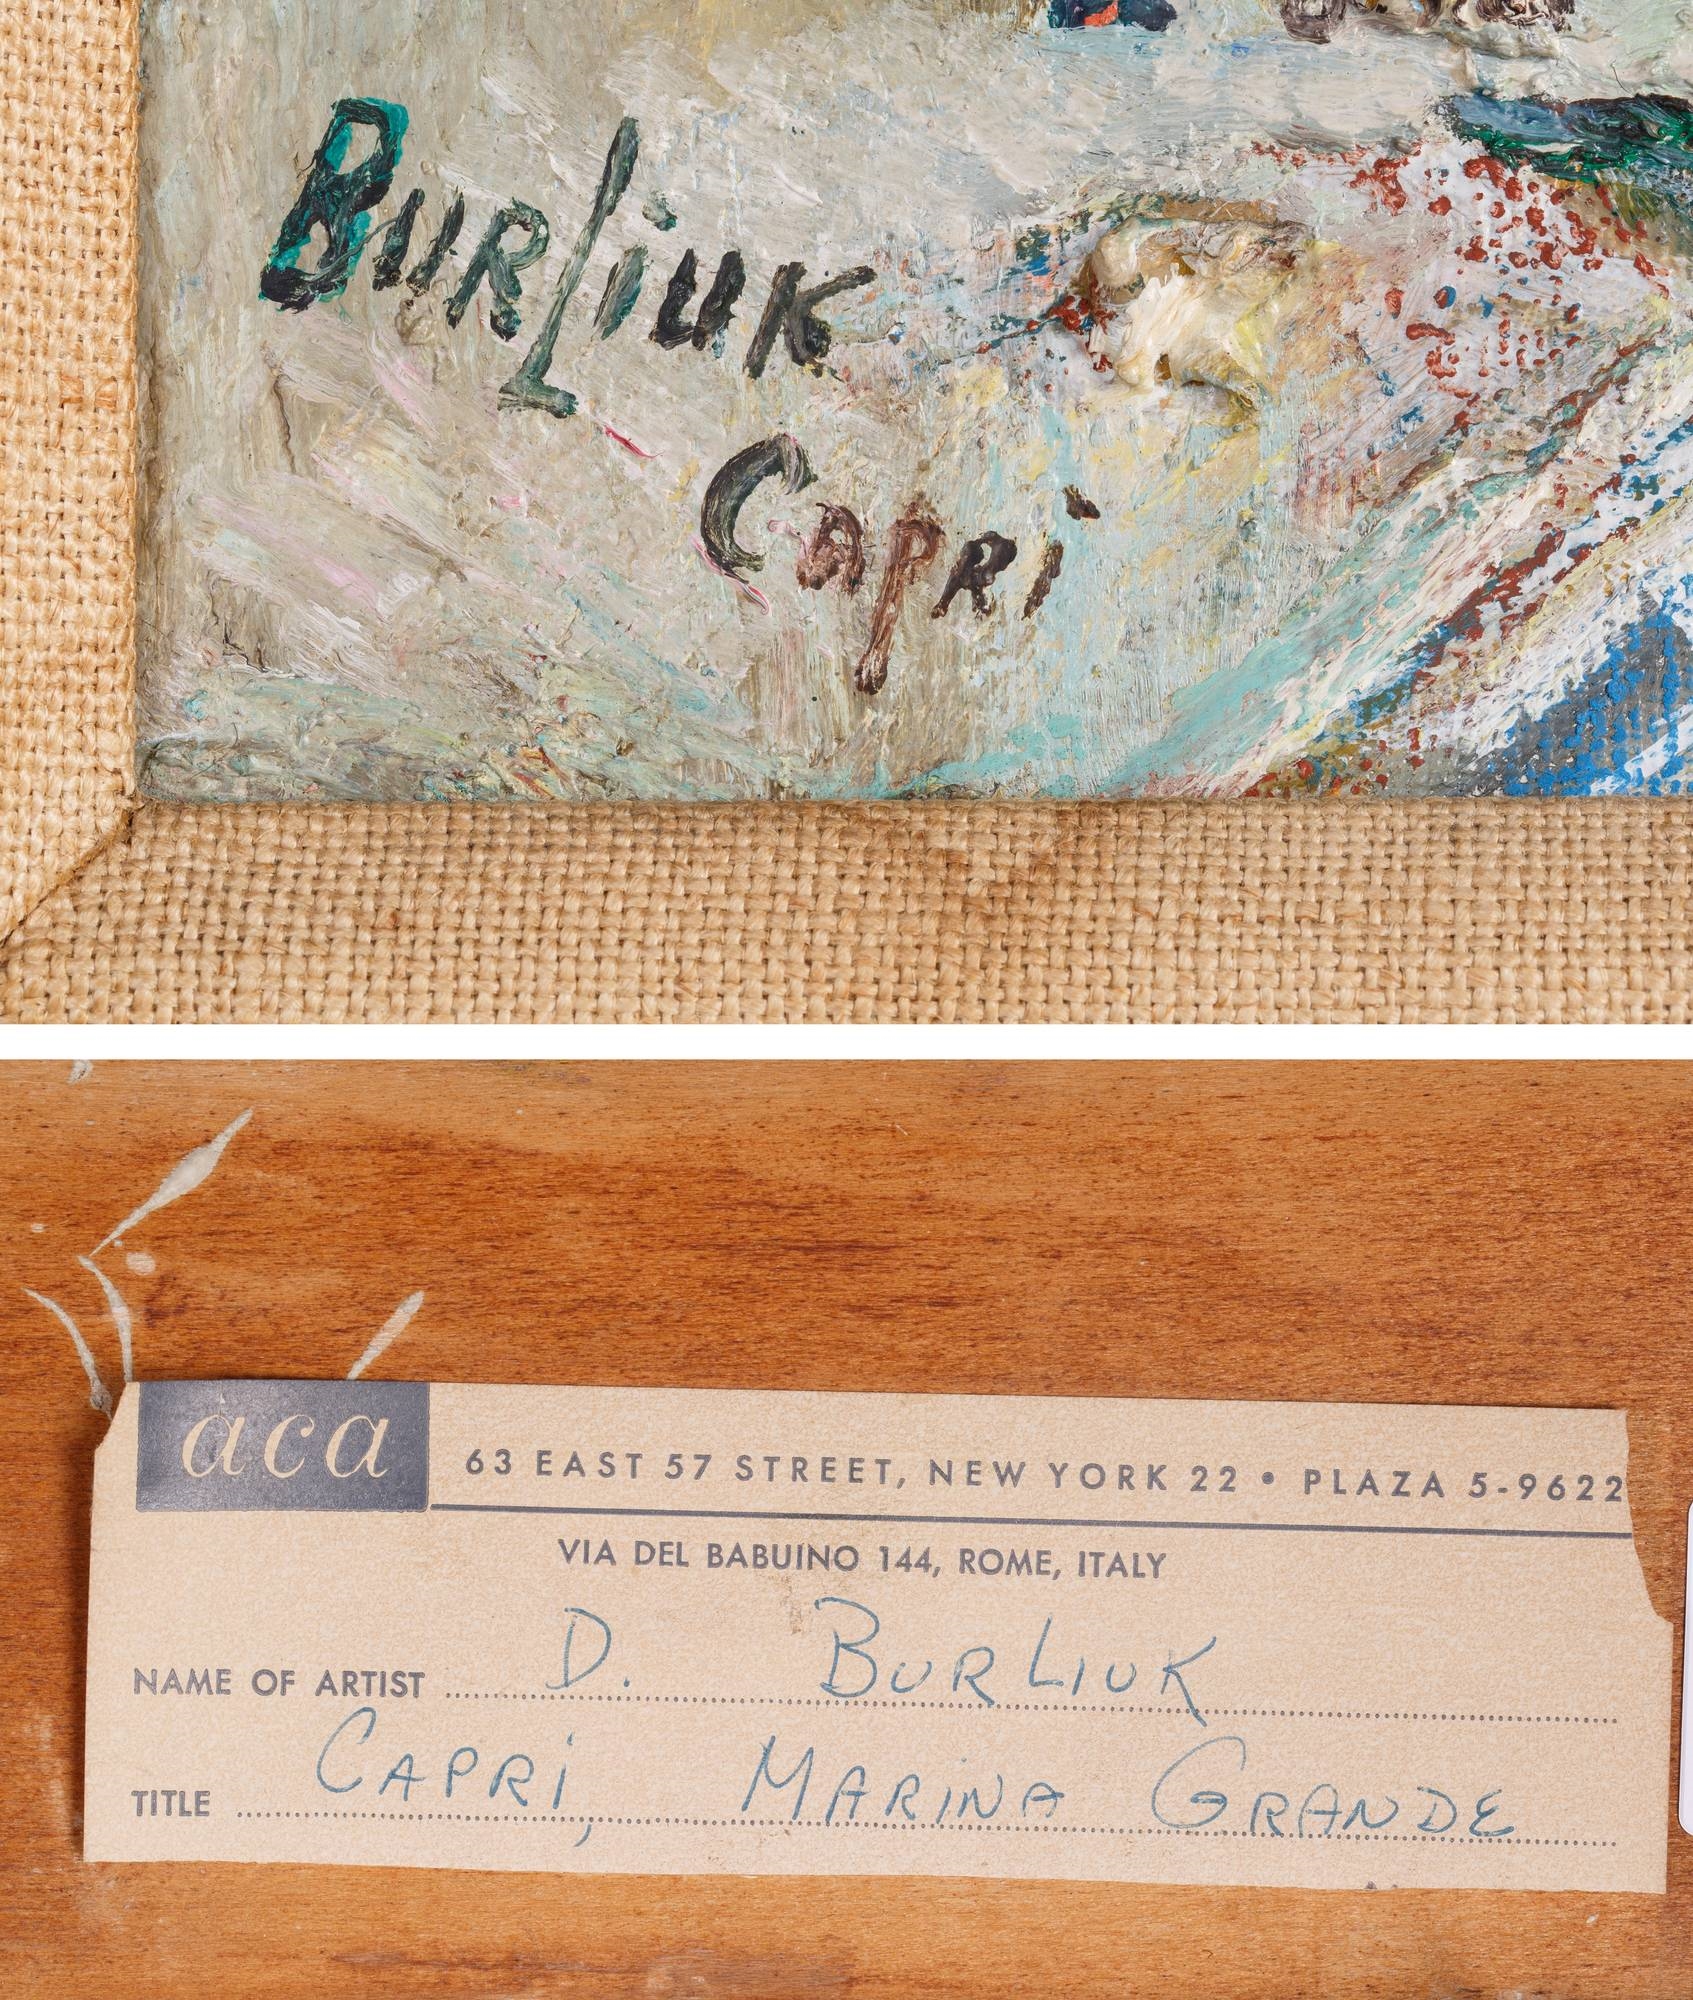 BURLiUK
CAPRi
aca
63 EAST 57 STREET, NEW YORK 22 • PLAZA 5-9622
VIA DEL BABUINO 144, ROME, ITALY
NAME OF ARTIST D. BURLIUK
TITLE CAPRi, MARiNA GRANDE